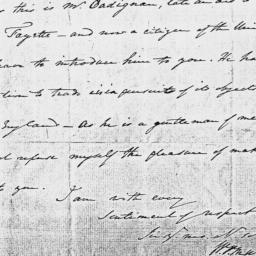 this is Mr. Cadignan, late an aid
Fayette — and now a citizen of the Uni
to introduce him to you. He ha
tion to trade in pursuit of its objects
England — As he is a gentleman of me
refuse myself the pleasure of mak
to you.
I am with every
Sentiment of respect